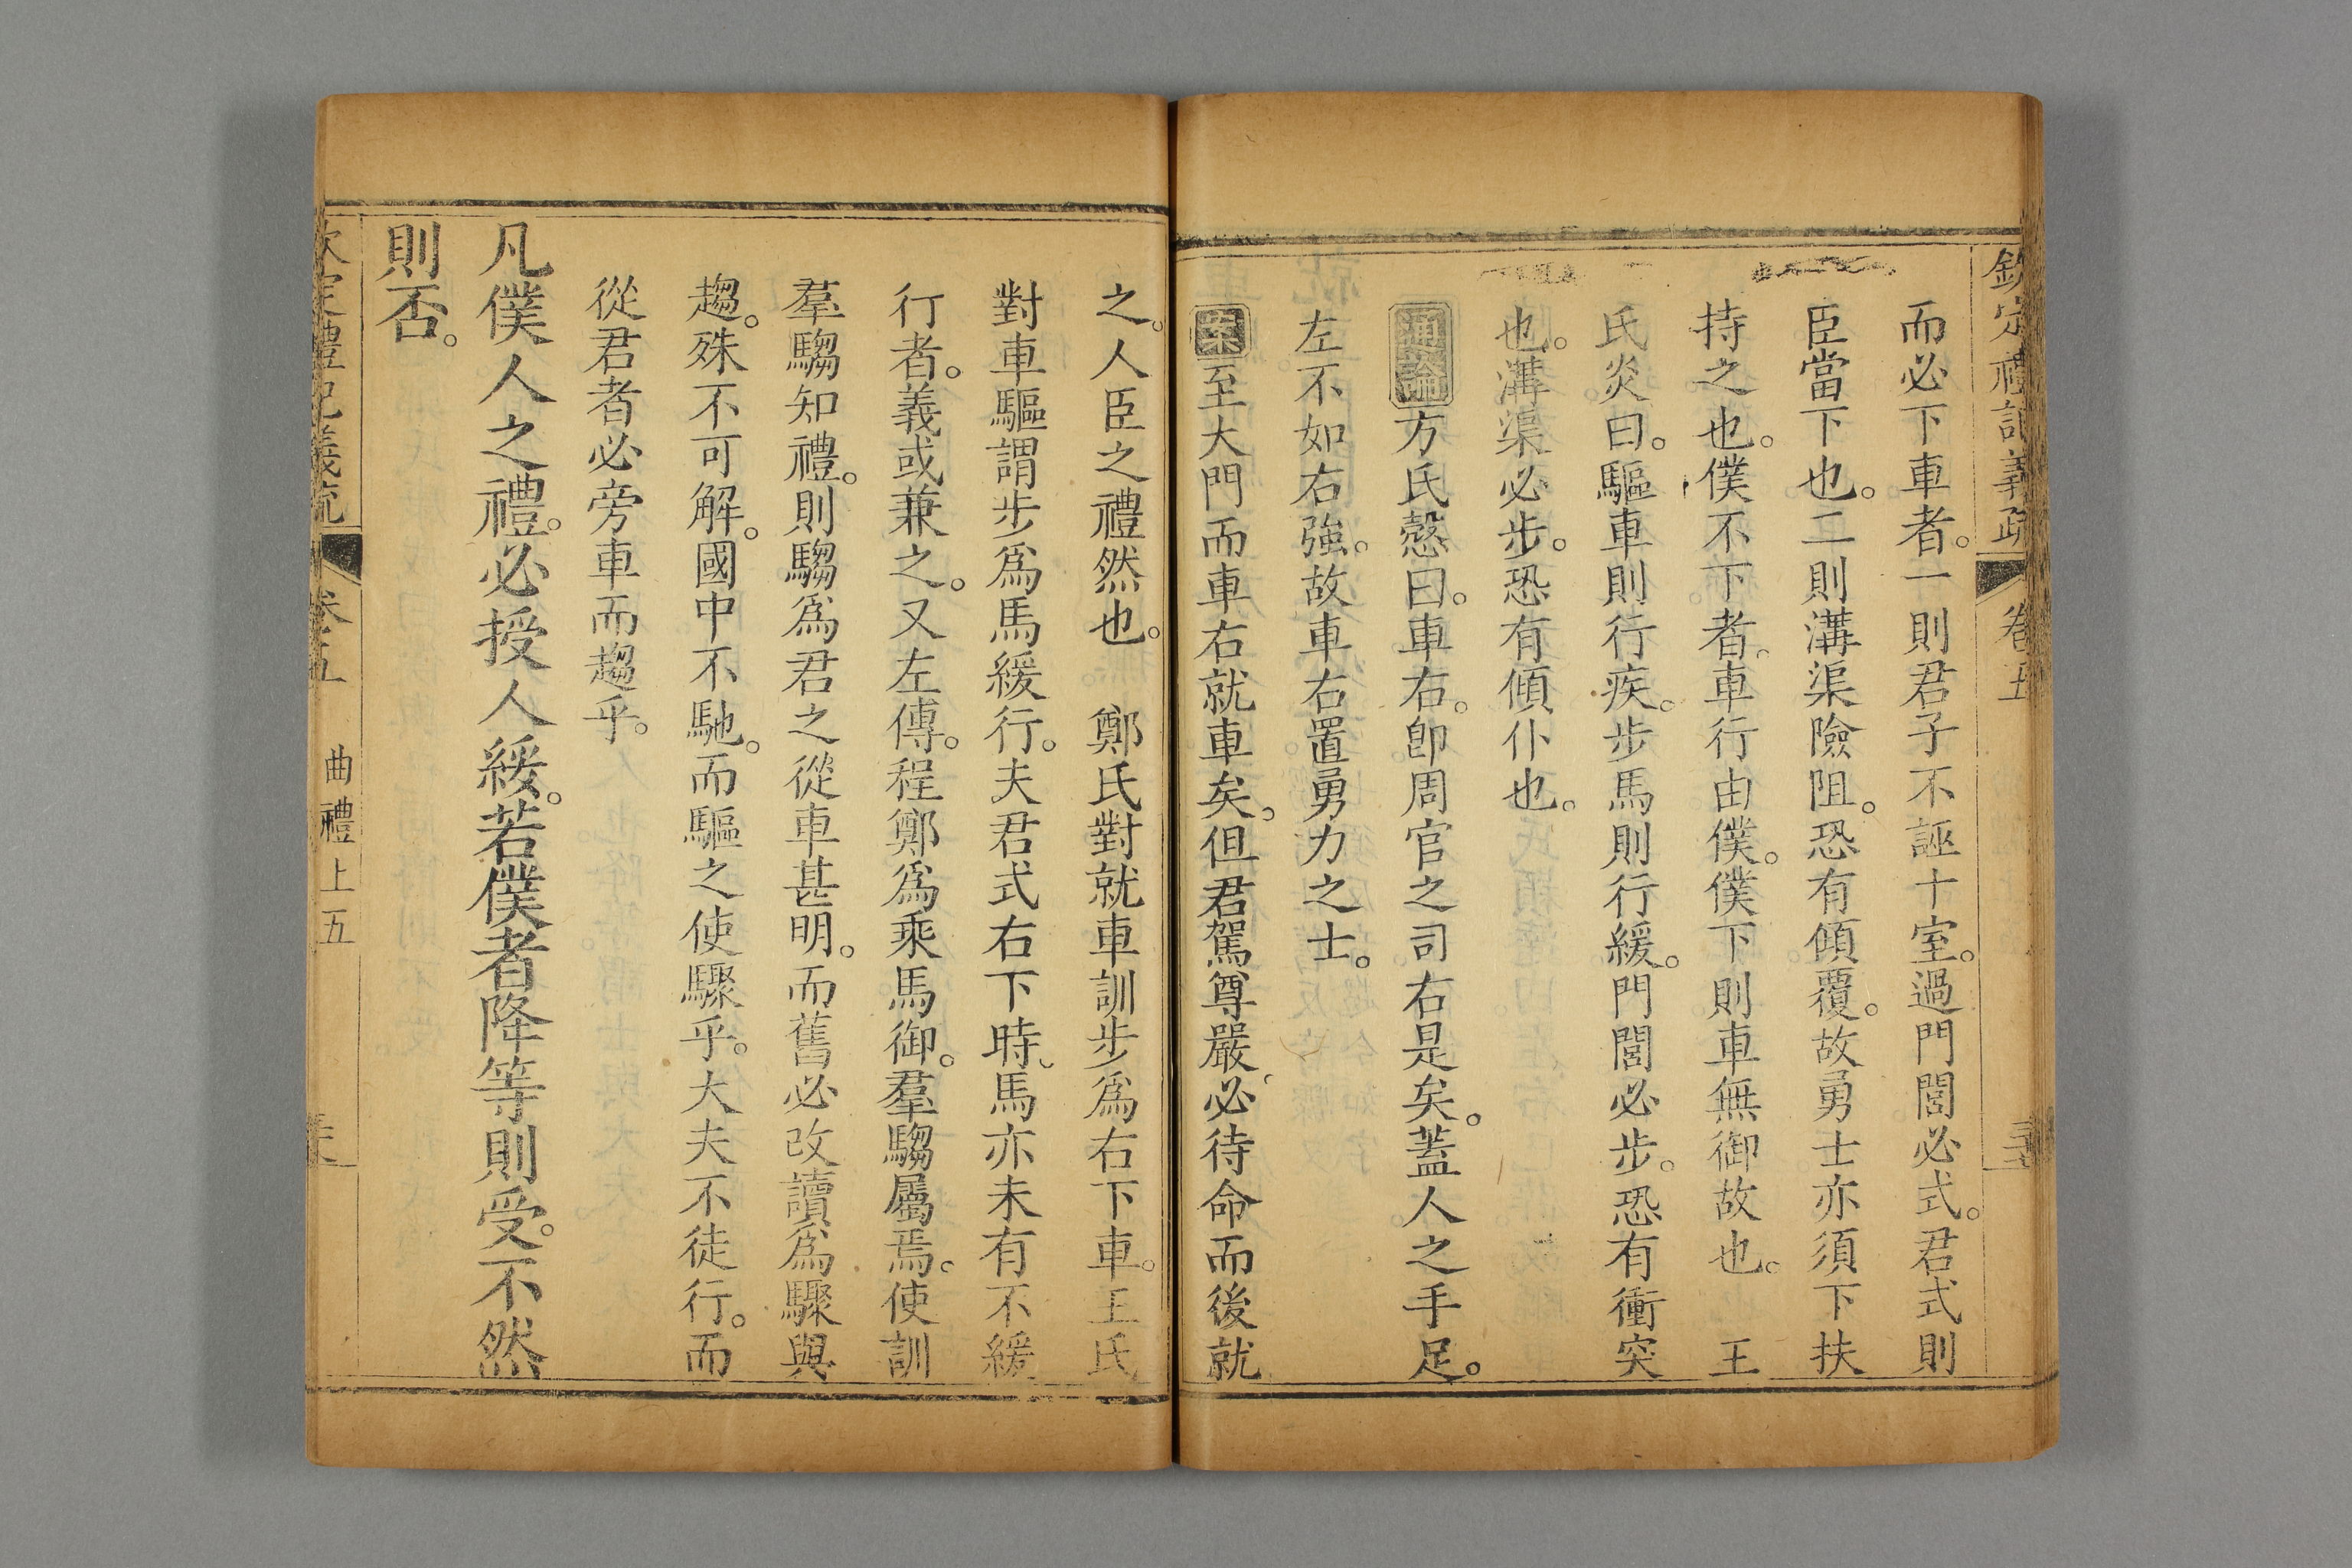 欽定禮記義疏 卷五
而必下車者。一則君子不誣十室。過門閭必式。君式則
臣當下也。二則溝渠險阻。恐有傾覆。故勇士亦須下扶
持之也。僕不下者。車行由僕。僕下則車無御故也。 王
氏炎曰。驅車則行疾。步馬則行緩。門閭必步。恐有衝突
也。溝渠必步。恐有傾仆也。
通論方氏慤曰。車右。卽周官之司右是矣。蓋人之手足。
左不如右強。故車右置勇力之士。
案至大門而車右就車矣。但君駕尊嚴。必待命而後就
之。人臣之禮然也。 鄭氏對就車訓步爲右下車。王氏
對車驅謂步爲馬緩行。夫君式右下時。馬亦未有不緩
行者。義或兼之。又左傳。程鄭爲乘馬御。羣騶屬焉。使訓
羣騶知禮。則騶爲君之從車甚明。而舊必改讀爲驟與
趨。殊不可解。國中不馳。而驅之使驟乎。大夫不徒行。而
從君者必旁車而趨乎。
凡僕人之禮。必授人綏。若僕者降等則受。不然
則否。
欽定禮記義疏 卷五 曲禮上五